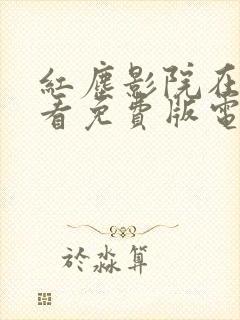 紅塵影院在
看免費版電
於淼算